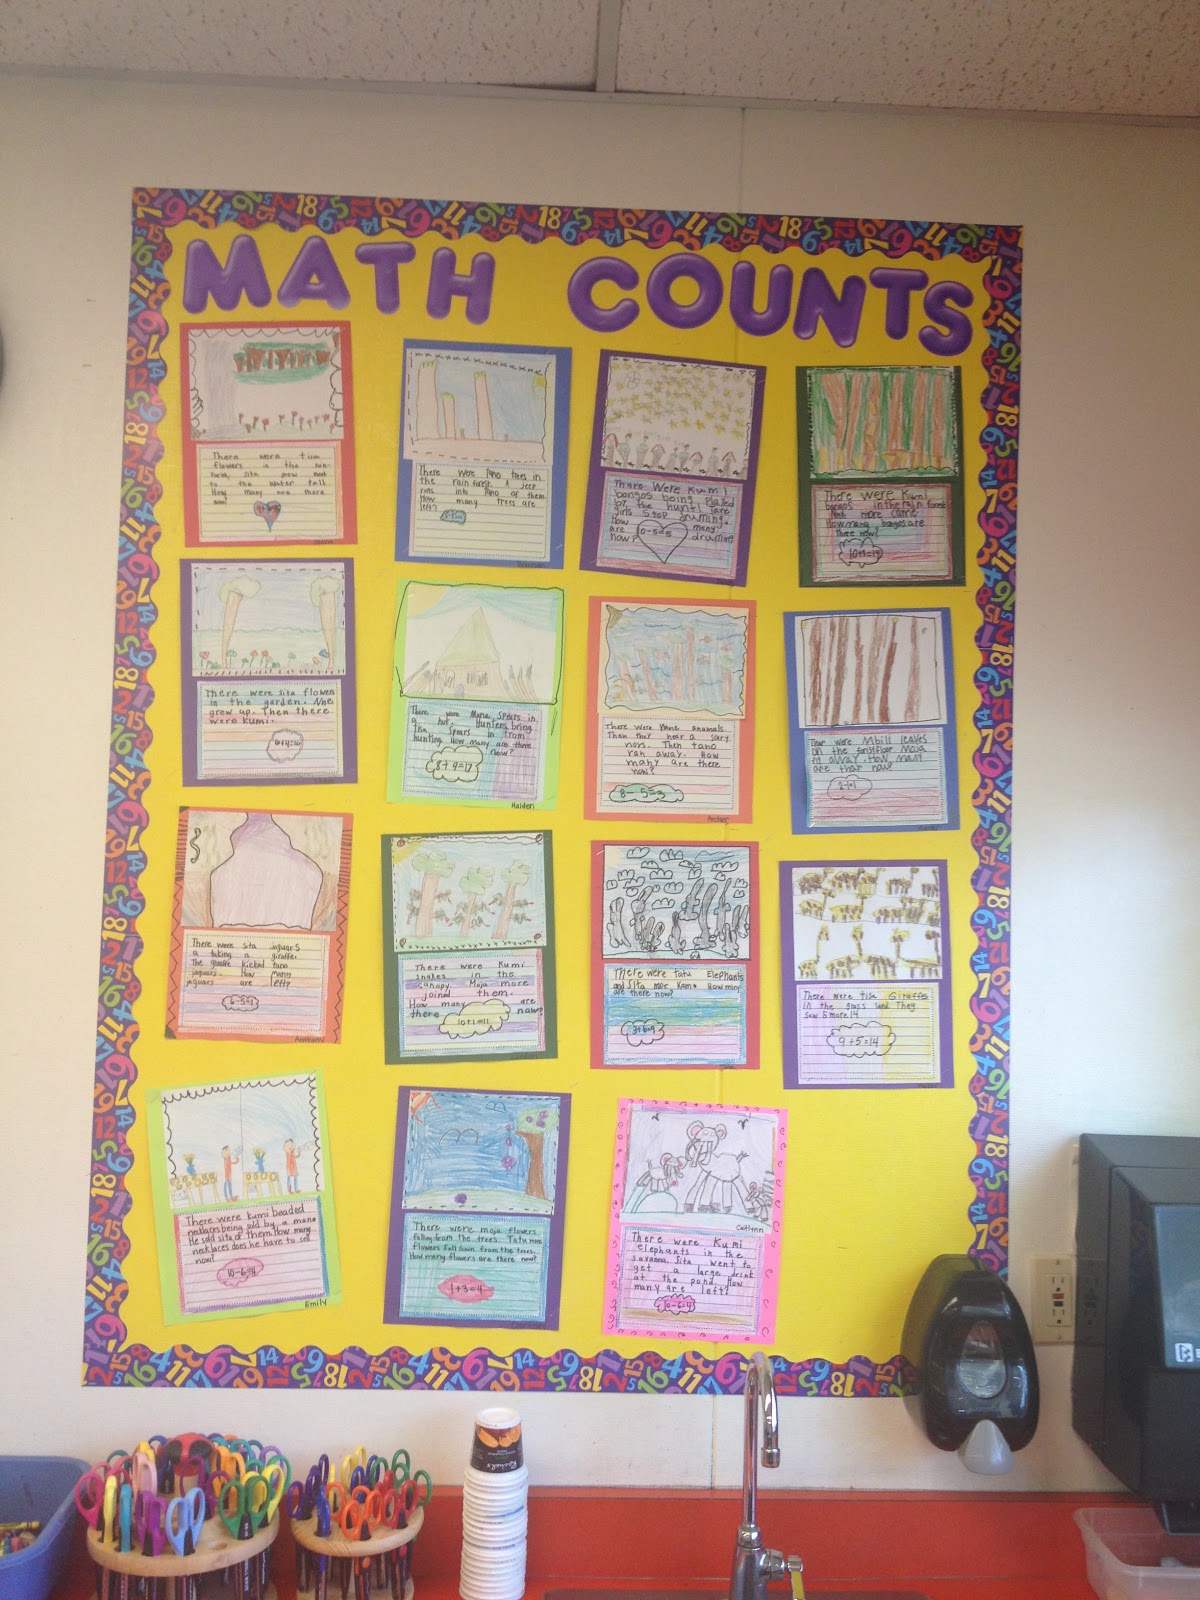 MATH COUNTS
There were
flowers in the
field, sita grew next
to the water fall
How many are there
now?
There were tano trees in
the rain forest. A jeep
runs into tano of them
How many trees are
left?
There were Kumi
bongos being played
by the hunt
girls stop drumming.
How many
are drumming
now?
10-5=5
There were Kumi
bongos in the rain forest
more came
How many bongos are
there now?
There were sita flower
in the garden. Nne
grew up. Then there
were kumi.
6+4=10
There were Mane spears in
a hut. Hunters bring
spears in from
hunting. How many are there
now?
8+9=17
Haiden
There were Mane anamals.
Then they hear a
noys. Then tano
ran away. How
many are there
now?
8-5=3
Archer
Thar were Mbili leaves
on the forstfloor Moja
away. How many
are thar now?
2-1=1
There were sita jaguars
a taking a giraffe.
The giraffe kicked tano
jaguars. How many
jaguars are left?
6-5=1
Anthony
There were Kumi
snakes in the
canopy. Moja more
joined them.
How many are
there now?
10+1=11
There were Tatu Elephants
and Sita mor Kam. How miny
are there now?
3+6=9
There were tisa Giraffes
in the grass land. They
saw 5 more 14
9+5=14
There were kumi beaded
necklaces being sold by a man.
He sold sita of them. How many
necklaces does he have to sell
now?
10-6=4
Emily
There were moja flowers
falling from the trees. Tatu more
flowers fall down from the trees.
How many flowers are there now?
1+3=4
Caitlynn
There were Kumi
elephants in the
savanna. Sita went to
get a large drink
at the pond. How
many are left?
10-6=4